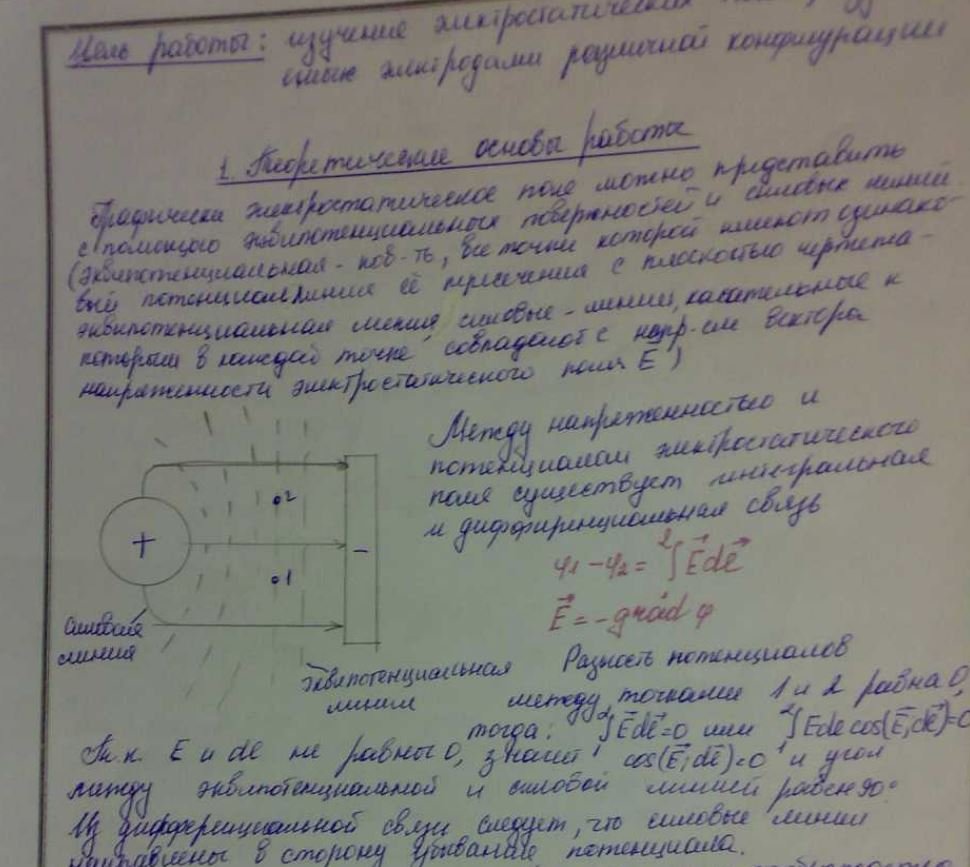 Цель работы: изучение электростатических
электродами различной конфигурации
1. Теоретические основы работы
Графически электростатическое поле можно представить
с помощью эквипотенциальных поверхностей и силовых линий
(эквипотенциальная - пов-ть, все точки которой имеют одинако-
вый потенциал, линия её пересечения с плоскостью чертежа -
эквипотенциальная линия, силовые - линии, касательные к
которым в каждой точке совпадают с напр-ем вектора
напряженности электростатического поля E)
Между напряженностью и
потенциалом электростатического
поля существует интегральная
и дифференциальная связь
φ1 - φ2 = ₁∫² E⃗dl⃗
E⃗ = -grad φ
+
-
2
1
силовая
линия
эквипотенциальная
линия
Разность потенциалов
между точками 1 и 2 равна 0,
тогда: ₁∫² E⃗dl⃗=0 или ₁∫² Edl cos(E⃗,dl⃗)=0
Т.к. E и dl не равны 0, значит cos(E⃗,dl⃗)=0 и угол
между эквипотенциальной и силовой линией равен 90°
Из дифференциальной связи следует, что силовые линии
направлены в сторону убывания потенциала.